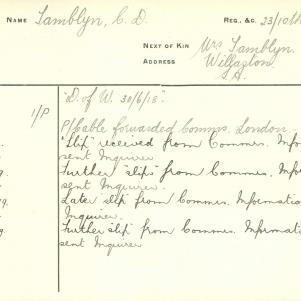 NAME Tamblyn, C. D. REG., &C. 23/10th
NEXT OF KIN Mrs Tamblyn.
ADDRESS Willaston
S.A.
"D. of W. 30/6/18".
1/P P/Cable forwarded Comms. London.
"Slip" received from Commrs. Infor
sent Inquirer
9. Further "slips" from Commrs. Infor
sent Inquirer.
19. Later "slip" from Commrs. Information
Inquirer.
9. Further slip from Commrs. Informati
sent Inquirer